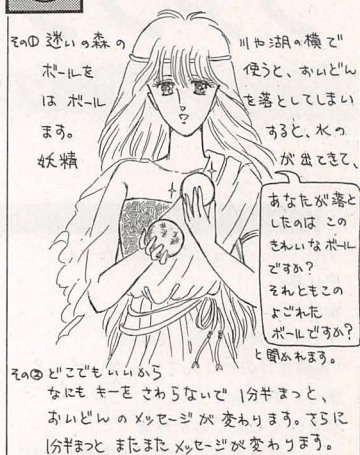 その① 迷いの森の川や湖の横で
ボールを使うと、おいどん
はボールを落としてしまい
ます。すると、水の
妖精が出てきて、
あなたが落と
したのは この
きれいなボール
ですか?
それともこの
よごれた
ボールですか?
と聞かれます。
その② どこでもいいから
なにも キーを さわらないで 1分半まつと、
おいどんの メッセージが 変わります。さらに
1分半まつと またまた メッセージが変わります。